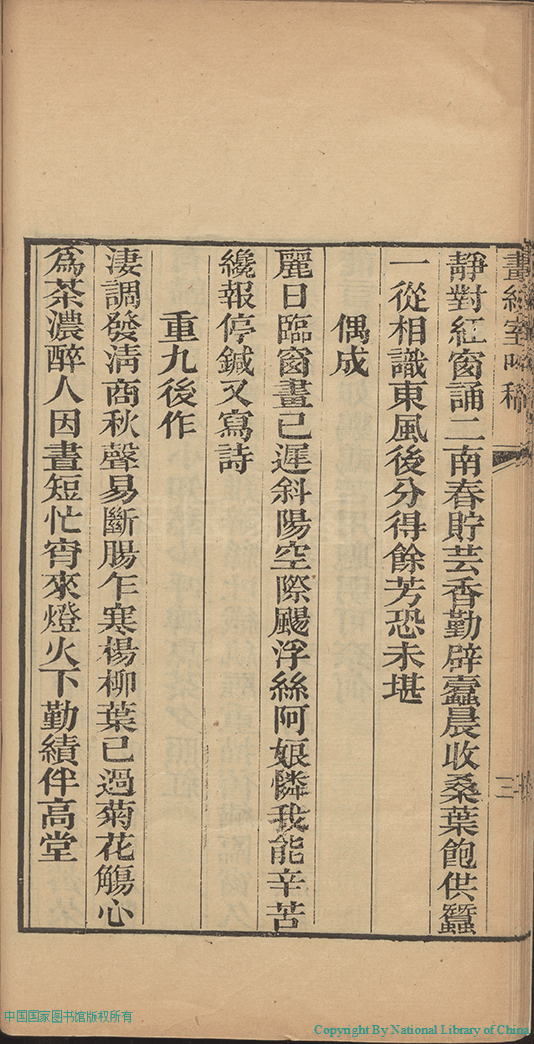 靜對紅窗誦二南春貯芸香勤辟蠹晨收桑葉飽供蠶
一從相識東風後分得餘芳恐未堪
偶成
麗日臨窗晝已遲斜陽空際颺浮絲阿娘憐我能辛苦
纔報停鍼又寫詩
重九後作
淒調發淸商秋聲易斷腸乍寒楊柳葉已過菊花觴心
爲茶濃醉人因晝短忙宵來燈火下勤績伴高堂
三
中国国家图书馆版权所有
Copyright By National Library of China